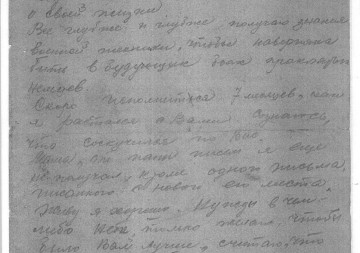 о своей жизни
Все глубже и глубже получаю знания
военной техники, чтобы наверняка
бить в будущих боях проклятых
немцев.
Скоро исполнится 7 месяцев, как
я расстался с Вами
что соскучился по Вас.
Мама, от папы писем я еще
не получал, кроме одного письма,
писанного с нового его места.
Живу я хорошо. Нужды в чем-
либо нет, только желаю, чтобы
было Вам лучше, считаю, что